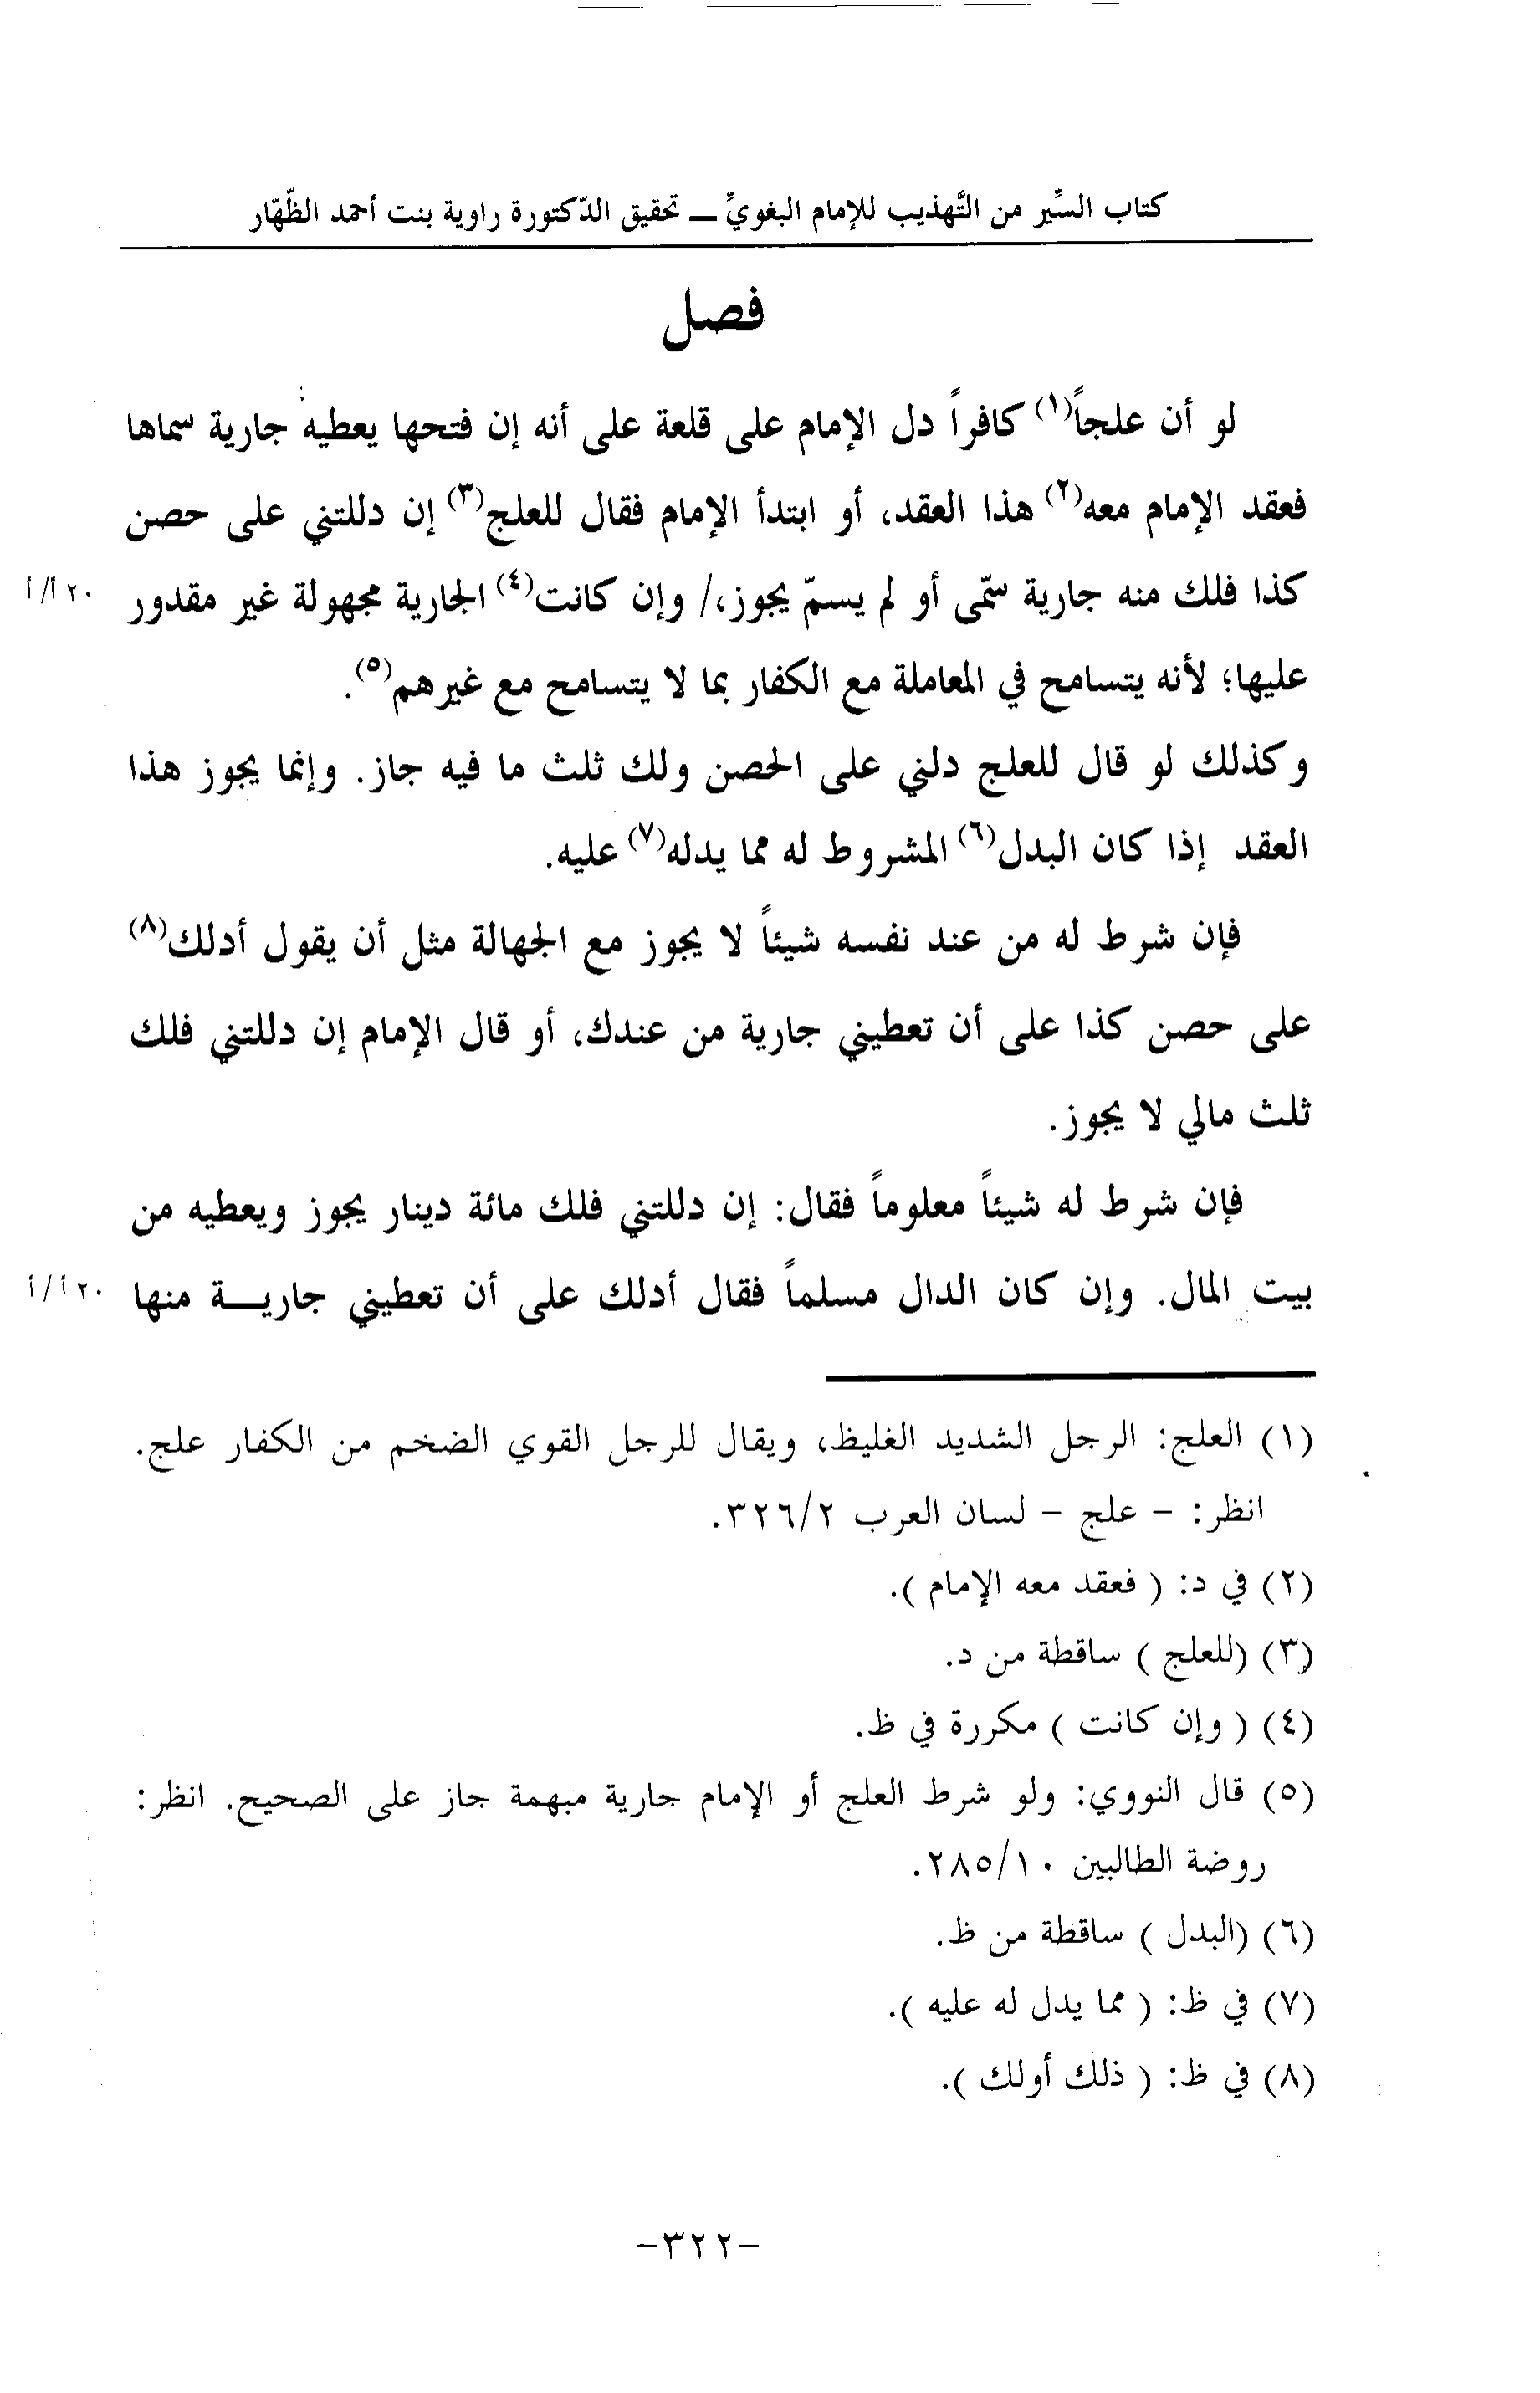 كتاب السِّير من التَّهذيب للإمام البغويِّ ــ تحقيق الدّكتورة راوية بنت أحمد الظّهّار
فصل
لو أن علجاً(١) كافراً دل الإمام على قلعة على أنه إن فتحها يعطيه جارية سماها
فعقد الإمام معه(٢) هذا العقد، أو ابتدأ الإمام فقال للعلج(٣) إن دللتني على حصن
كذا فلك منه جارية سمّى أو لم يسمّ يجوز،/ وإن كانت(٤) الجارية مجهولة غير مقدور
٢٠أ/أ
عليها؛ لأنه يتسامح في المعاملة مع الكفار بما لا يتسامح مع غيرهم(٥).
وكذلك لو قال للعلج دلني على الحصن ولك ثلث ما فيه جاز. وإنما يجوز هذا
العقد إذا كان البدل(٦) المشروط له مما يدله(٧) عليه.
فإن شرط له من عند نفسه شيئاً لا يجوز مع الجهالة مثل أن يقول أدلك(٨)
على حصن كذا على أن تعطيني جارية من عندك، أو قال الإمام إن دللتني فلك
ثلث مالي لا يجوز.
فإن شرط له شيئاً معلوماً فقال: إن دللتني فلك مائة دينار يجوز ويعطيه من
بيت المال. وإن كان الدال مسلماً فقال أدلك على أن تعطيني جاريــة منها
٢٠أ/أ
(١) العلج: الرجل الشديد الغليظ، ويقال للرجل القوي الضخم من الكفار علج.
انظر: - علج - لسان العرب ٣٢٦/٢.
(٢) في د: ( فعقد معه الإمام ).
(٣) (للعلج ) ساقطة من د.
(٤) ( وإن كانت ) مكررة في ظ.
(٥) قال النووي: ولو شرط العلج أو الإمام جارية مبهمة جاز على الصحيح. انظر:
روضة الطالبين ٢٨٥/١٠.
(٦) (البدل ) ساقطة من ظ.
(٧) في ظ: ( مما يدل له عليه ).
(٨) في ظ: ( ذلك أولك ).
-٣٢٢-